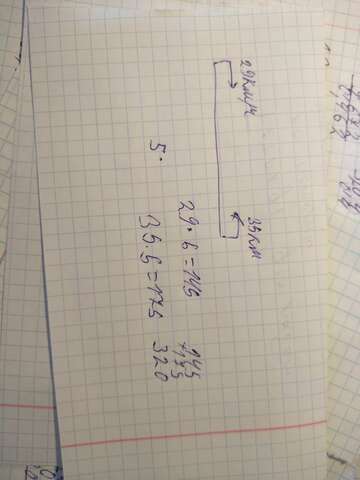 29км/ч 35км
29·5=145 145
+175
5· 35·5=175 320